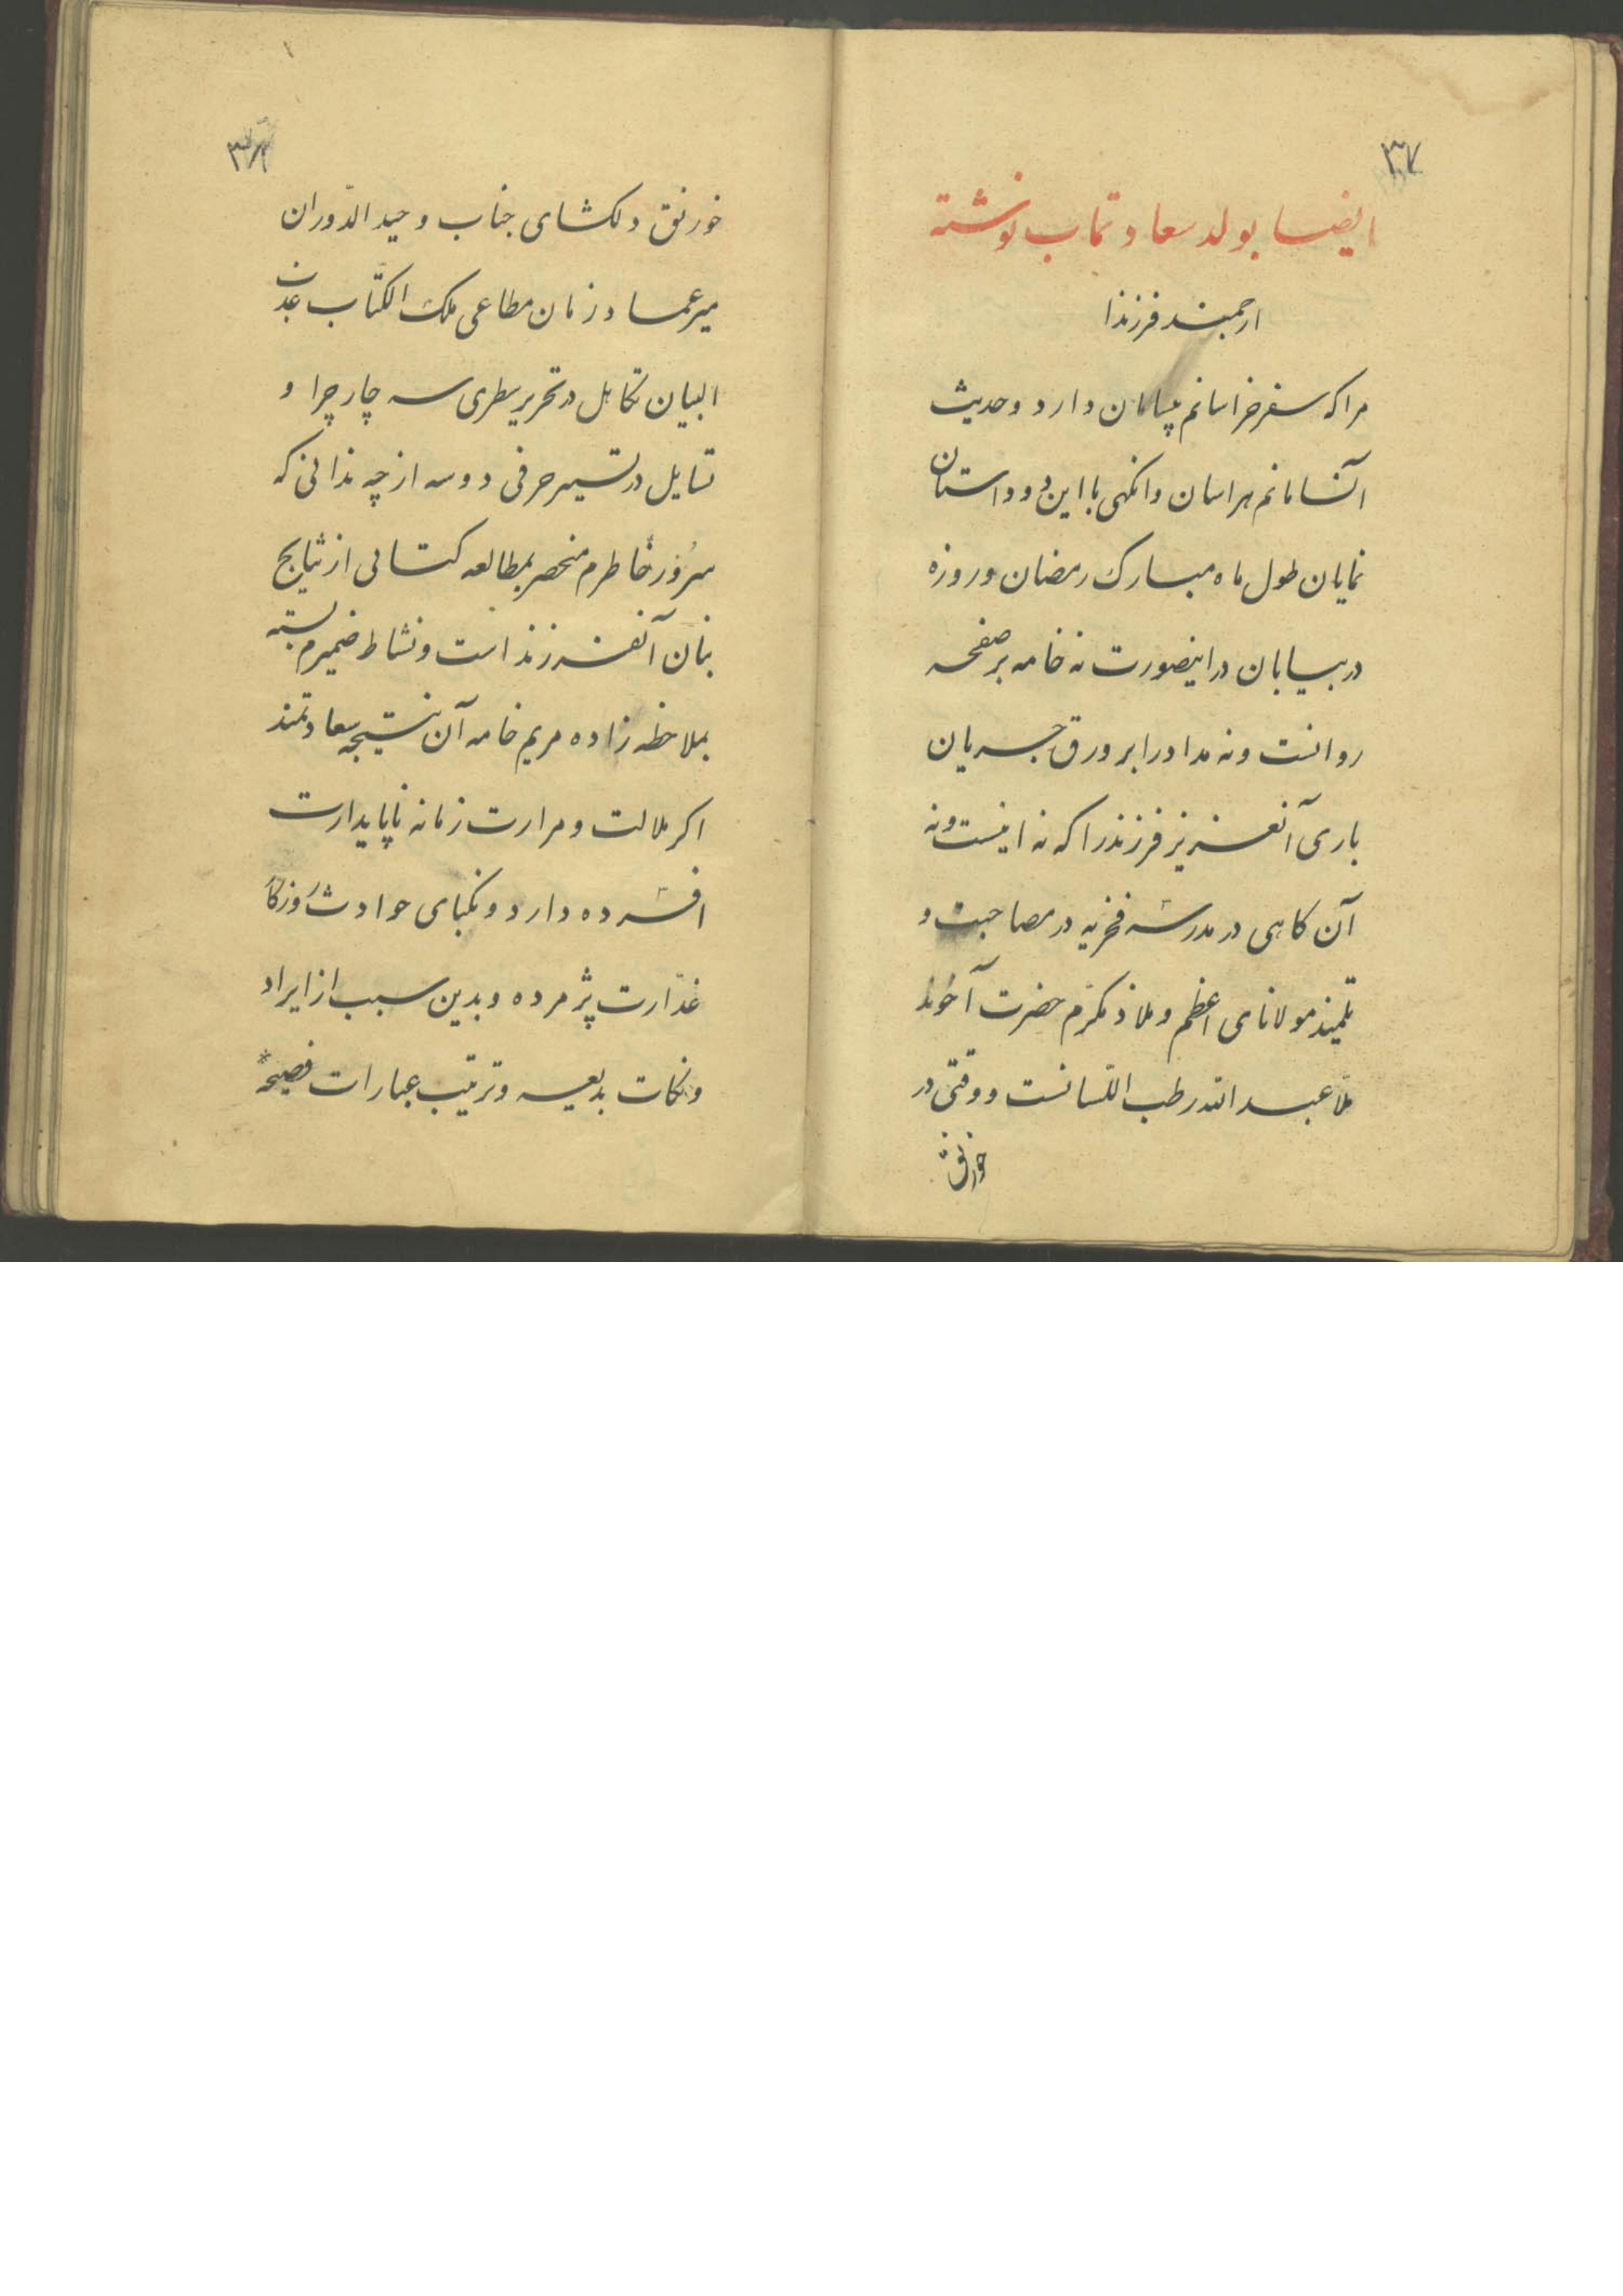 ۳۷
ایضا بولد سعادتماب نوشته
ارجمند فرزندا
مرا که سفر خراسانم بپایان دارد و حدیث
انشا مانم هراسان وانگهی با این دو داستان
نمایان طول ماه مبارک رمضان و روزه
در بیابان در اینصورت نه خامه بر صفحه
روانست و نه مداد را بر ورق جریان
باری آنعزیز فرزند را که نه اینست و نه
آن کاهی در مدرسه فخریه در مصاحبت و
تلمیذ مولانای اعظم و ملاذ مکرم حضرت آخوند
ملا عبدالله رطب اللسانست و وقتی در
خورنق
خورنق دلکشای جناب وحید الدّوران
میر عماد زمان مطاعی ملک الکتّاب عذب
البیان تکاهل در تحریر سطری سه چار چرا و
تساهل در تسییر حرفی دو سه از چه ندانی که
سرور خاطرم منحصر بمطالعه کتابی از نتایج
بنان آنفرزند است و نشاط ضمیرم بسته
بملاحظه زاده مریم خامه آن نتیجه سعادتمند
اکر ملالت و مرارت زمانه ناپایدارت
افسرده دارد و نکبای حوادث روزکار
غدّارت پژمرده و بدین سبب از ایراد
و نکات بدیعه و ترتیب عبارات فصیحه